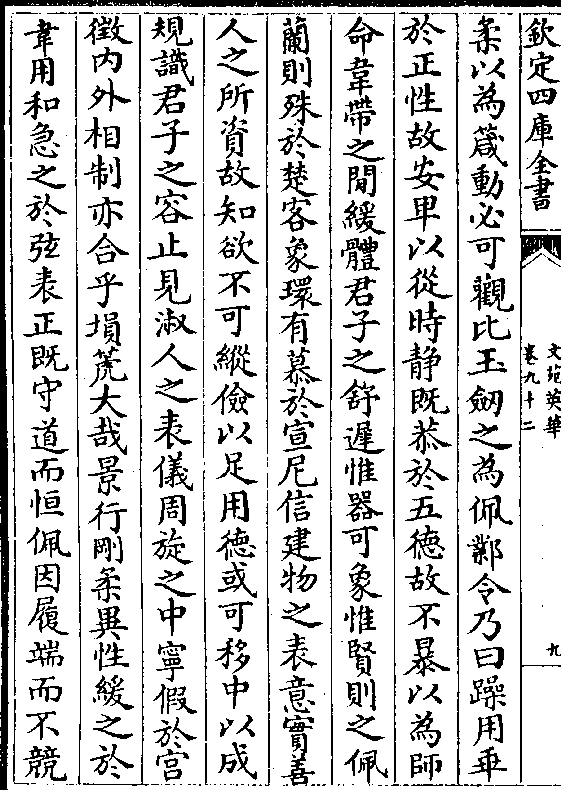 欽定四庫全書
文苑英華
卷九十二
九
柔以為箴動必可觀比玉劒之為佩鄴令乃曰躁用乖
於正性故安卑以從時静既恭於五德故不暴以為師
命韋帶之間緩體君子之舒遲惟器可象惟賢則之佩
蘭則殊於楚客象環有慕於宣尼信建物之表意實善
人之所資故知欲不可縱儉以足用德或可移中以成
規識君子之容止見淑人之表儀周旋之中寧假於宫
徵内外相制亦合乎塤箎大哉景行剛柔異性緩之於
韋用和急之於弦表正既守道而恒佩因履端而不競